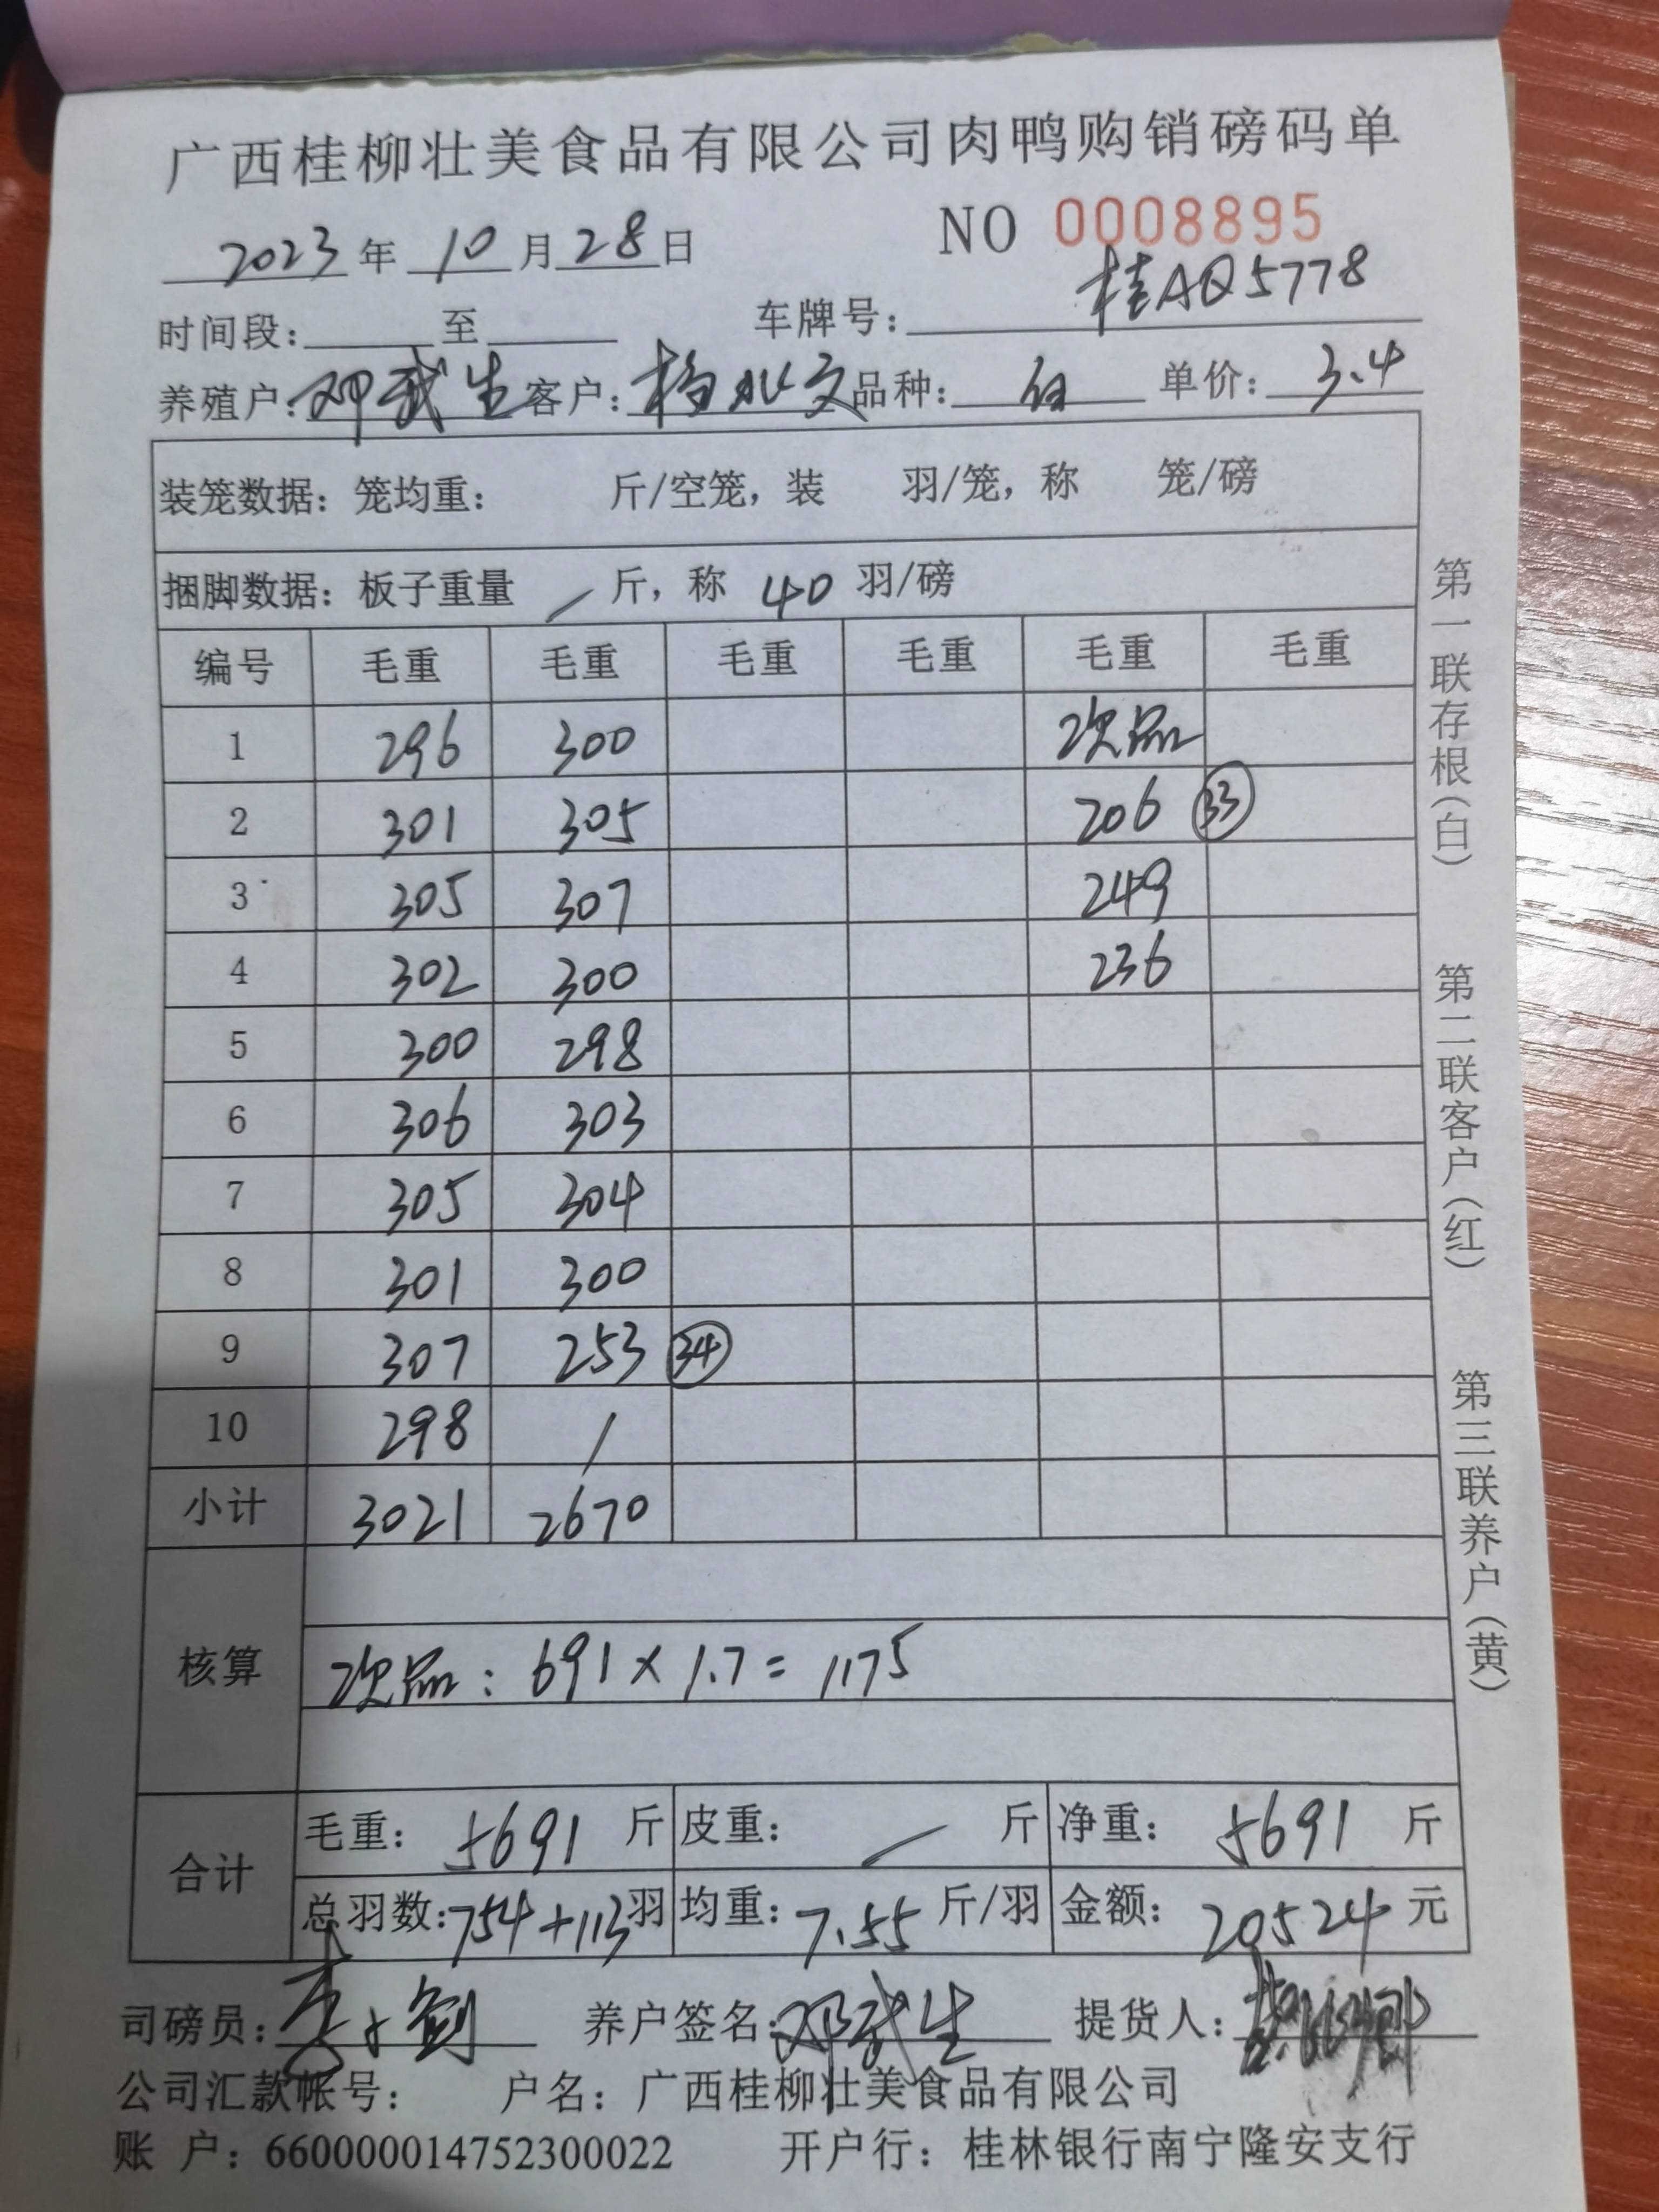 广西桂柳壮美食品有限公司肉鸭购销磅码单
2023年10月28日 NO 0008895
时间段: 至 车牌号: 桂AQ5778
养殖户: 邓武生 客户: 品种: 白 单价: 3.4
装笼数据: 笼均重: 斤/空笼, 装 羽/笼, 称 笼/磅
捆脚数据: 板子重量 / 斤, 称 40 羽/磅
编号 毛重 毛重 毛重 毛重 毛重 毛重
1 296 300 次品
2 301 305 206 33
3 305 307 249
4 302 300 236
5 300 298
6 306 303
7 305 304
8 301 300
9 307 253 34
10 298 /
小计 3021 2670
核算
次品: 691×1.7=1175
合计
毛重: 5691 斤 皮重: / 斤 净重: 5691 斤
总羽数: 754+113羽 均重: 7.55 斤/羽 金额: 20524 元
司磅员: 养户签名: 邓武生 提货人:
公司汇款帐号: 户名: 广西桂柳壮美食品有限公司
账 户: 660000014752300022 开户行: 桂林银行南宁隆安支行
第一联存根(白) 第二联客户(红) 第三联养户(黄)